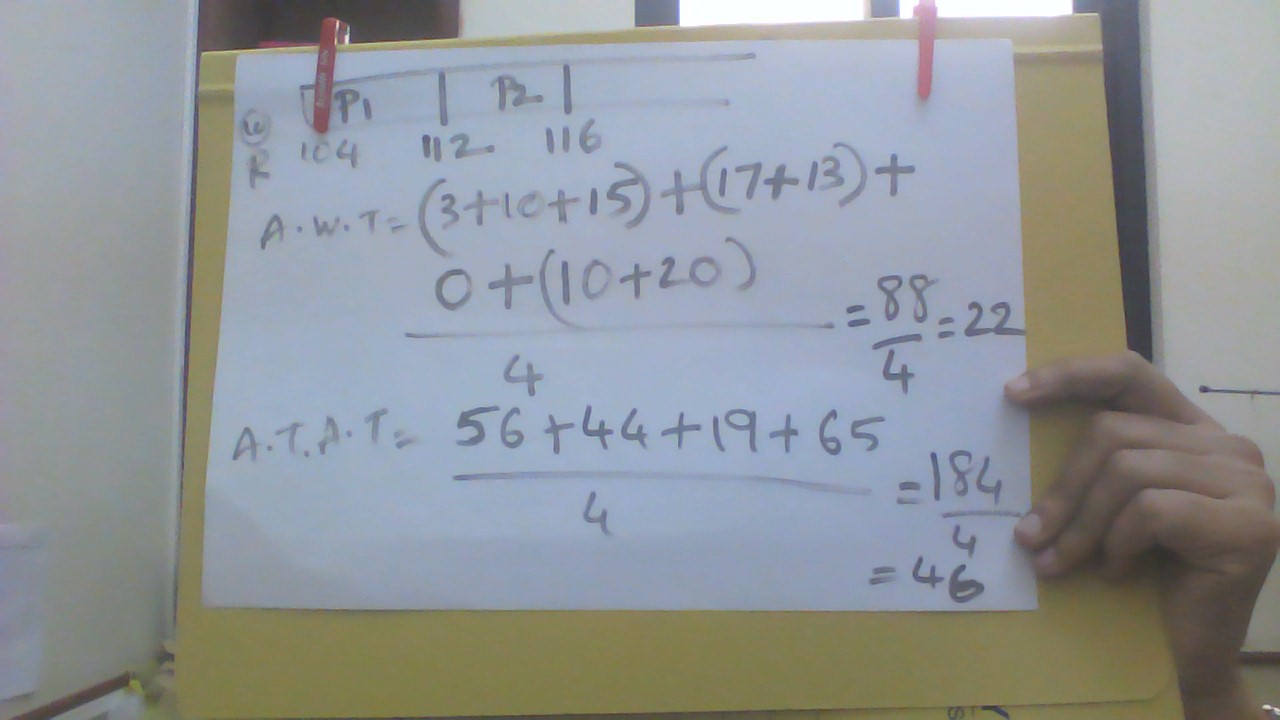 P1 | P2 |
104 112. 116
R
A.W.T = (3+10+15) + (17+13) +
0 + (10+20)
4
= 88/4 = 22
A.T.A.T = 56+44+19+65
4
= 184
4
= 46